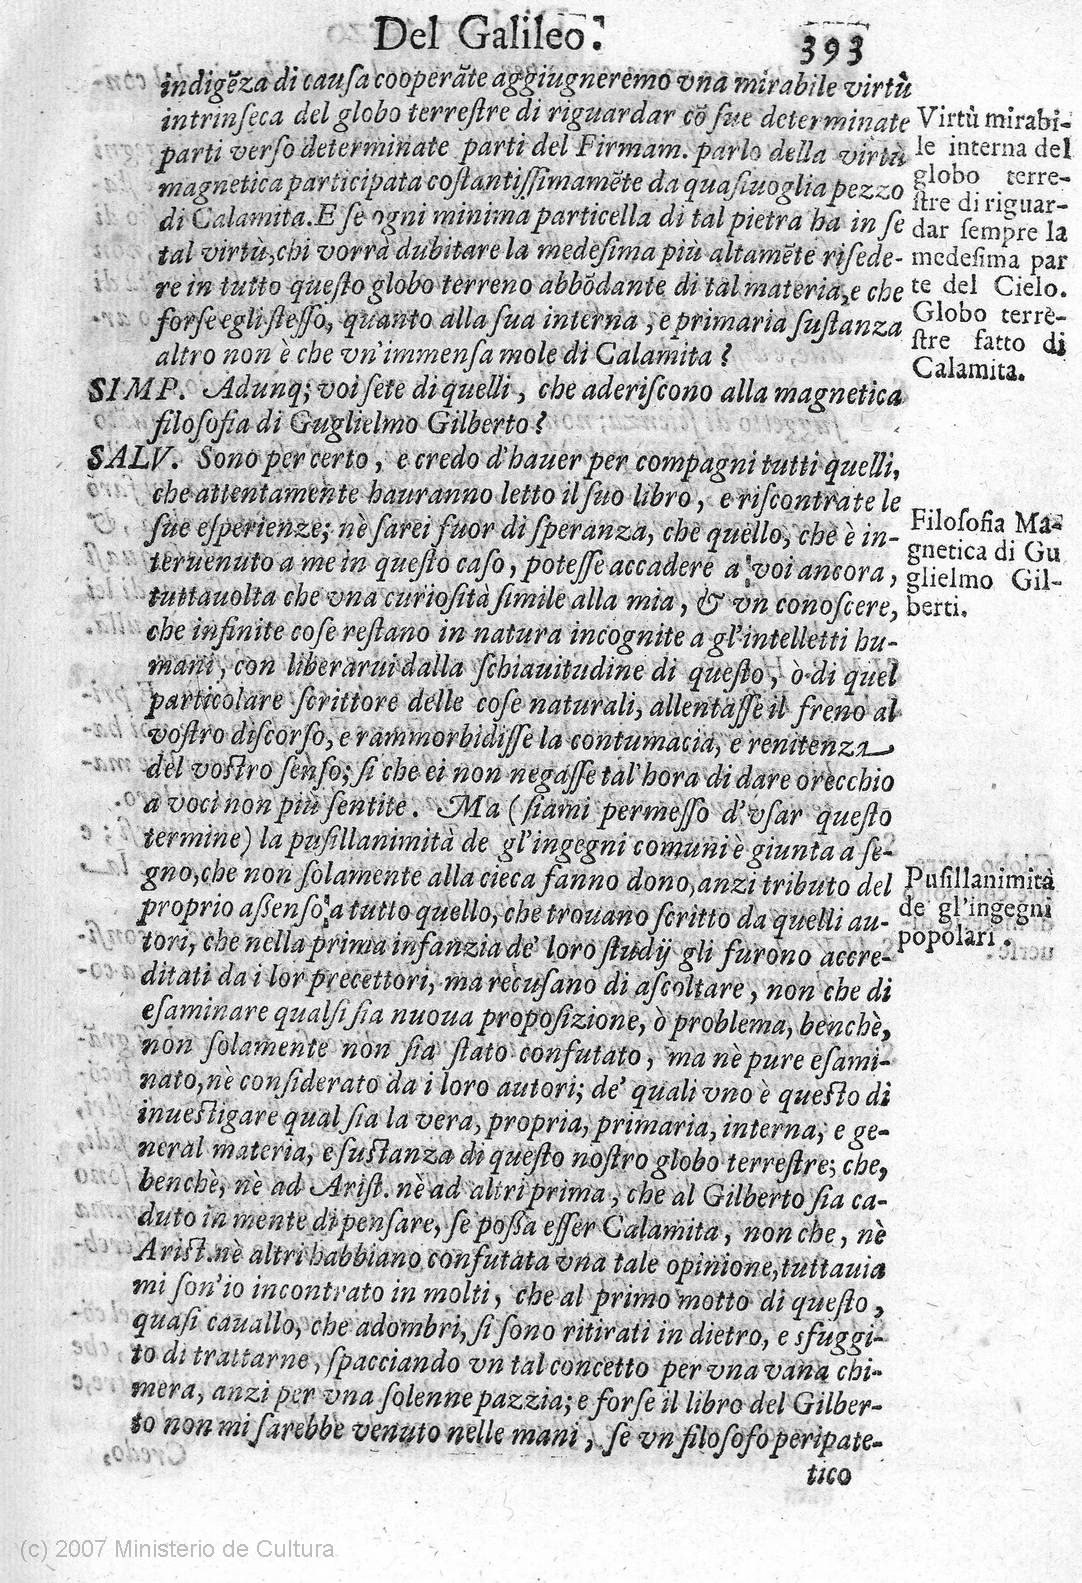 Del Galileo.
393
indigẽza di cauſa cooperãte aggiugneremo vna mirabile virtù
intrinſeca del globo terreſtre di riguardar cõ ſue determinate
parti verſo determinate parti del Firmam. parlo della virtù
magnetica participata coſtantiſſimamẽte da quaſiuoglia pezzo
di Calamita. E ſe ogni minima particella di tal pietra ha in ſe
tal virtù, chi vorrà dubitare la medeſima più altamẽte riſede-
re in tutto queſto globo terreno abbõdante di tal materia, e che
forſe egli ſteſſo, quanto alla ſua interna, e primaria ſuſtanza
altro non è che vn'immenſa mole di Calamita?
Virtù mirabi-
le interna del
globo terre-
ſtre di riguar-
dar ſempre la
medeſima par
te del Cielo.
Globo terre-
ſtre fatto di
Calamita.
SIMP. Adunq; voi ſete di quelli, che aderiſcono alla magnetica
filoſofia di Guglielmo Gilberto?
SALV. Sono per certo, e credo d'hauer per compagni tutti quelli,
che attentamente hauranno letto il ſuo libro, e riſcontrate le
ſue eſperienze; nè ſarei fuor di ſperanza, che quello, che è in-
teruenuto a me in queſto caſo, poteſſe accadere a voi ancora,
tuttauolta che vna curioſità ſimile alla mia, & vn conoſcere,
che infinite coſe reſtano in natura incognite a gl'intelletti hu-
mani, con liberarui dalla ſchiauitudine di queſto, ò di quel
particolare ſcrittore delle coſe naturali, allentaſſe il freno al
voſtro diſcorſo, e rammorbidiſſe la contumacia, e renitenza
del voſtro ſenſo; ſi che ei non negaſſe tal'hora di dare orecchio
a voci non più ſentite. Ma (ſiami permeſſo d'vſar queſto
termine) la puſillanimità de gl'ingegni comuni è giunta a ſe-
gno, che non ſolamente alla cieca fanno dono, anzi tributo del
proprio aſſenſo a tutto quello, che trouano ſcritto da quelli au-
tori, che nella prima infanzia de' loro ſtudij gli furono accre-
ditati da i lor precettori, ma recuſano di aſcoltare, non che di
eſaminare qualſi ſia nuoua propoſizione, ò problema, benchè,
non ſolamente non ſia ſtato confutato, ma nè pure eſami-
nato, nè conſiderato da i loro autori; de' quali vno è queſto di
inueſtigare qual ſia la vera, propria, primaria, interna, e ge-
neral materia, e ſuſtanza di queſto noſtro globo terreſtre; che,
benchè, nè ad Ariſt. nè ad altri prima, che al Gilberto ſia ca-
duto in mente di penſare, ſe poſſa eſſer Calamita, non che, nè
Ariſt. nè altri habbiano confutata vna tale opinione, tuttauia
mi ſon'io incontrato in molti, che al primo motto di queſto,
quaſi cauallo, che adombri, ſi ſono ritirati in dietro, e sfuggi-
to di trattarne, ſpacciando vn tal concetto per vna vana chi-
mera, anzi per vna ſolenne pazzia; e forſe il libro del Gilber-
to non mi ſarebbe venuto nelle mani, ſe vn filoſofo peripate-
tico
Filoſofia Ma-
gnetica di Gu
glielmo Gil-
berti.
Puſillanimità
de gl'ingegni
popolari.
(c) 2007 Ministerio de Cultura